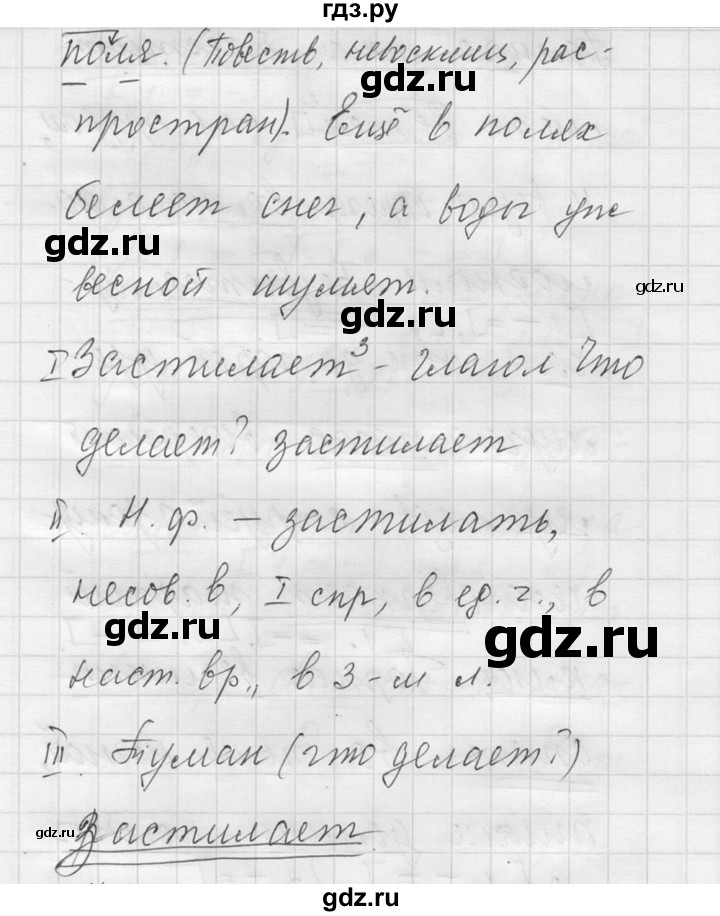 гдз.ру
поля. (Повеств, невосклиц, рас-
простран). Ещё в полях
белеет снег, а воды уж
gdz.ru
gdz.ru
весной шумят.
gdz.ru
I Застилает³ - глагол. Что
делает? застилает
II. Н. ф. – застилать,
несов. в, I спр, в ед. ч., в
gdz.ru
gdz.ru
наст. вр., в 3-м л.
III. Туман (что делает?)
gdz.ru
gdz.ru
застилает
gdz.ru